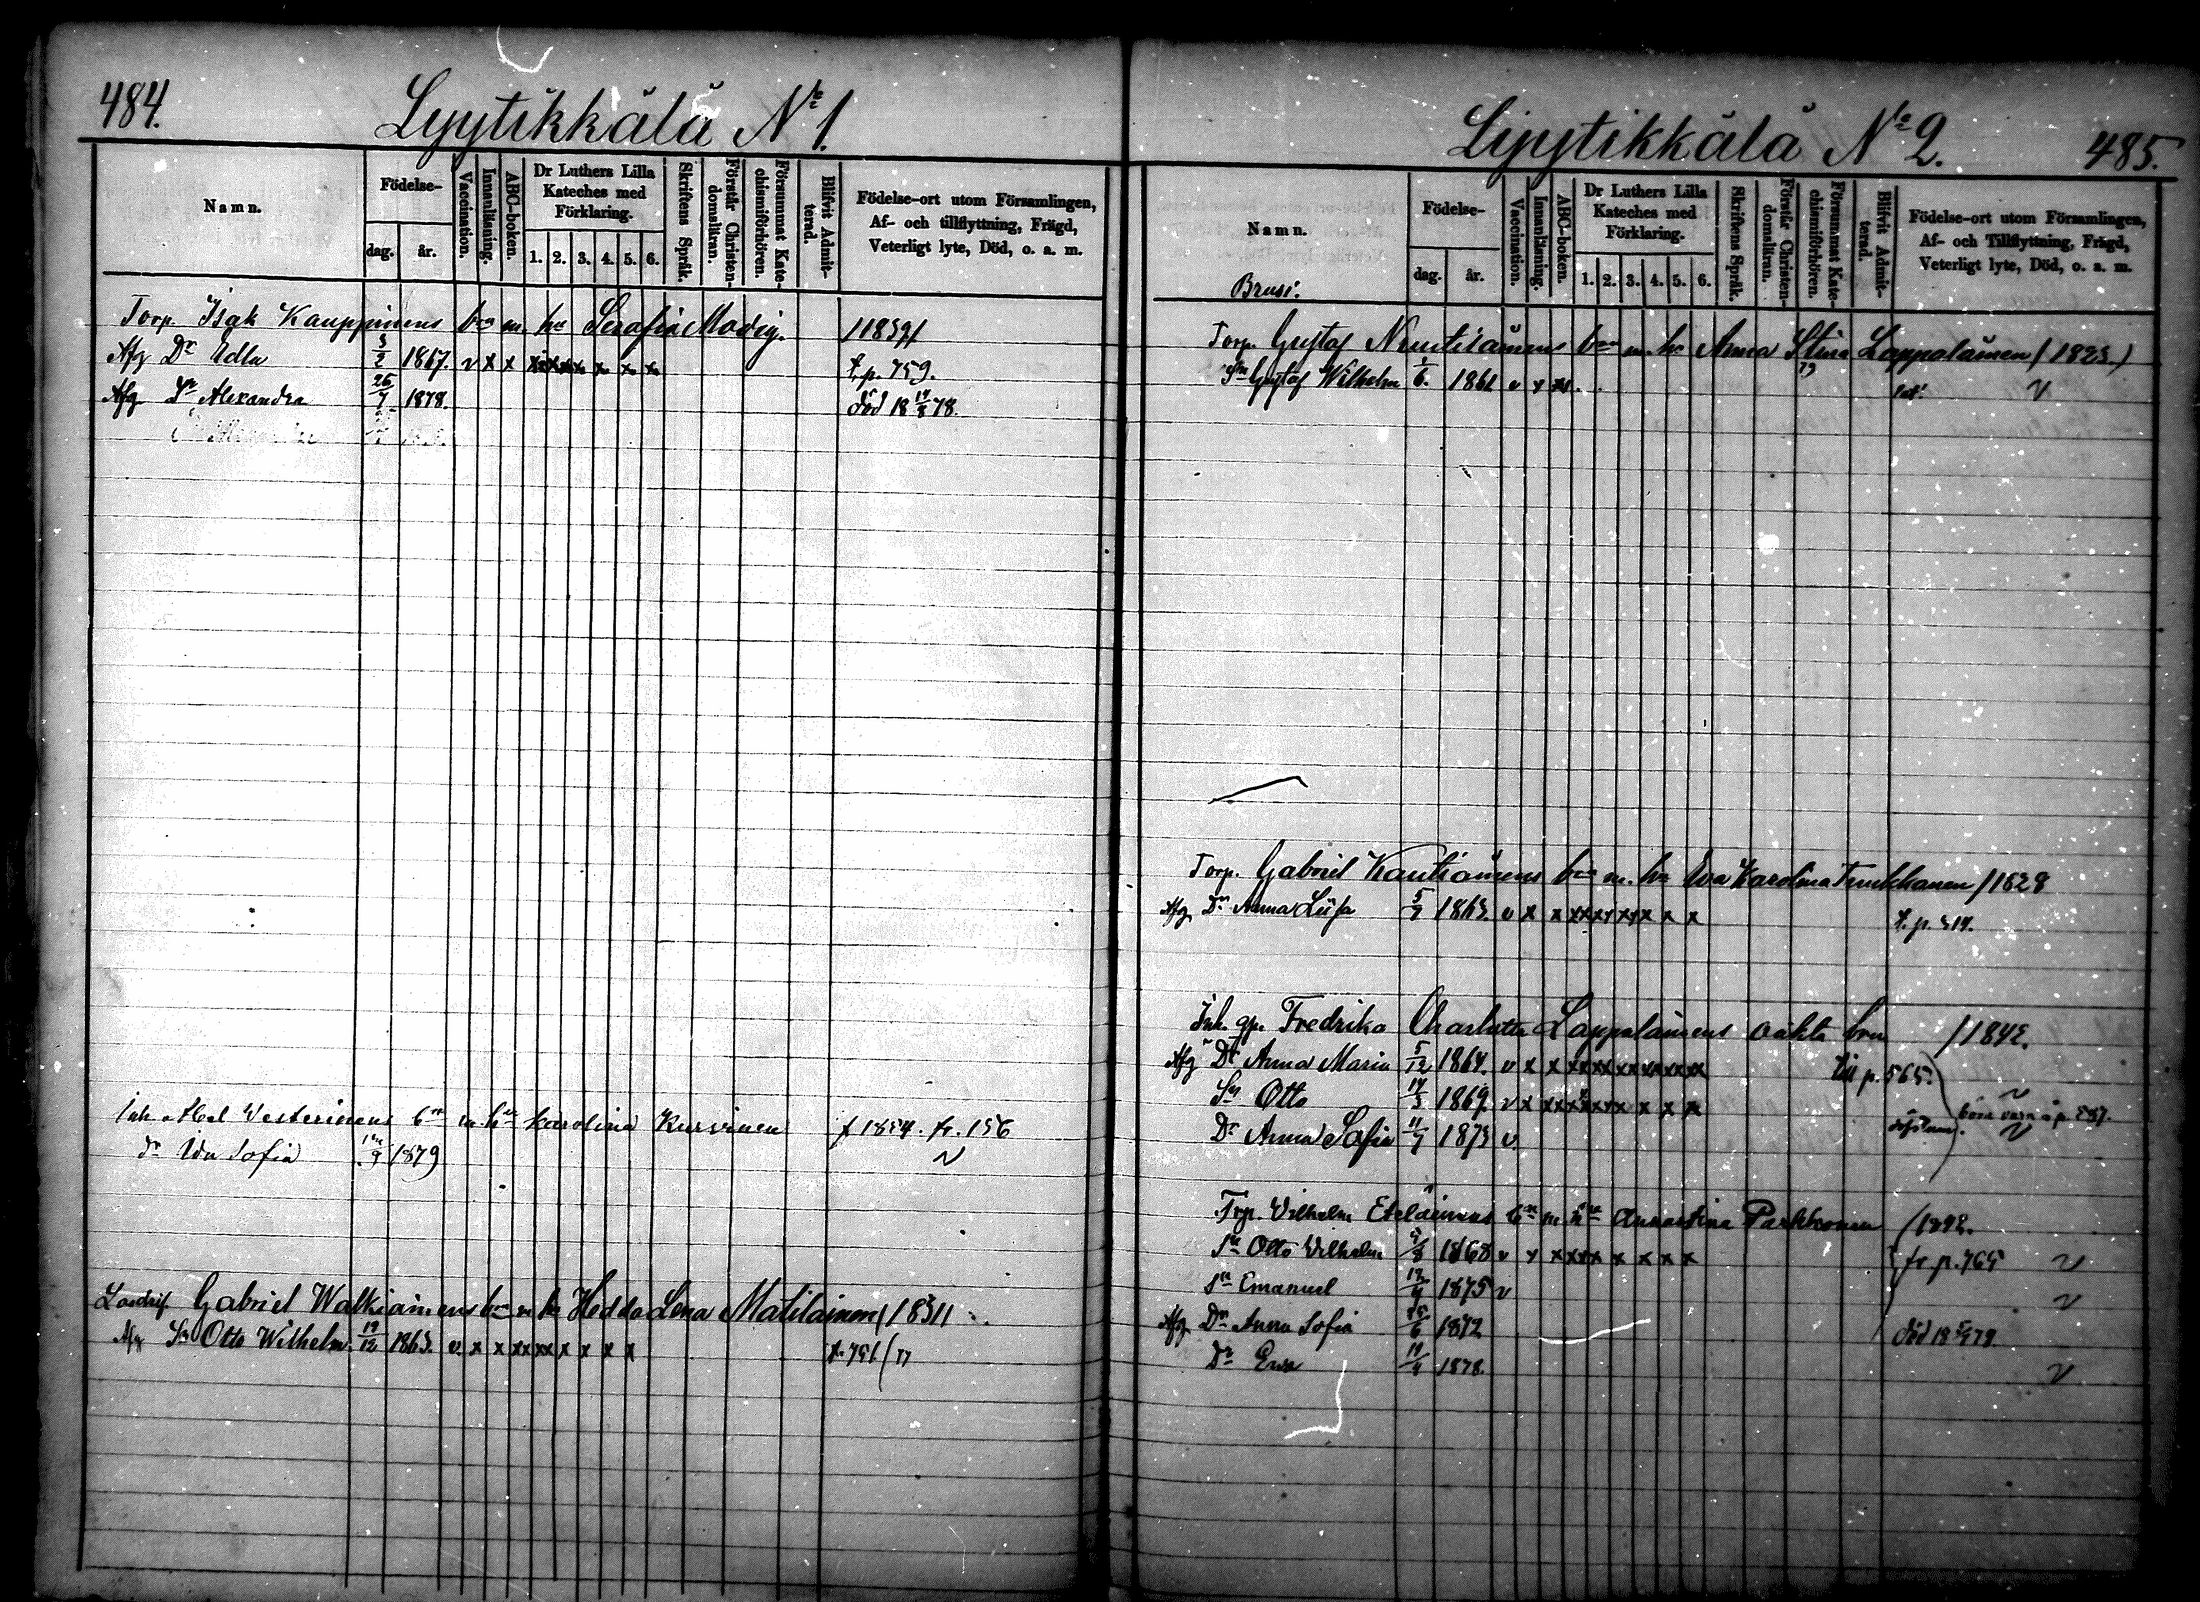 484.
Lyytikkälä No 1.
Namn.
Födelse-
dag.
år.
Vaccination.
Innanläsning.
ABC-boken.
Dr Luthers Lilla
Kateches med
Förklaring.
1. 2. 3. 4. 5. 6.
Skriftens Språk.
Förstår Christen-
domsläran.
Försummat Kate-
chismiförhören.
Blifvit Admit-
terad.
Födelse-ort utom Församlingen,
Af- och tillflyttning, Frägd,
Veterligt lyte, Död, o. a. m.
Torp. Isak Kauppinens bn m. hu Serafia Modig. /1839/
Afg Dr Edla 3/2 1867. v x x x x x x x x x f. p. 759.
Afg Dr Alexandra 26/7 1878. död 18 78.
Inh. Abel Vesterinens bn m. hu Karolina f 1854. fr. 156
dr Ida Sofia 9 1879 v
Gabriel Walkiainens bn m hu Hedda Lena Matilainen /1831/
Afg Sn Otto Wilhelm 19/12 1863. v. x x x x x x x x x
Lyytikkälä No 2.
485.
Namn.
Brusi.
Födelse-
dag.
år.
Vaccination.
Innanläsning.
ABC-boken.
Dr Luthers Lilla
Kateches med
Förklaring.
1. 2. 3. 4. 5. 6.
Skriftens Språk.
Förstår Christen-
domsläran.
Försummat Kate-
chismiförhören.
Blifvit Admit-
terad.
Födelse-ort utom Församlingen,
Af- och Tillflyttning, Frägd,
Veterligt lyte, Död, o. a. m.
Torp. Gustaf bn m. hu Anna Stina Lappalainen /1823/
Sn Gustaf Wilhelm 1/6. 1861 v x x v
Torp. Gabriel Kautiainens bn m. hu Eva Karolina /1828
Afg. Dr Anna Liisa 5/7 1863 v x x x x x x x x x f. p. 514.
Inh. gp. Fredrika Charlotta Lappalainens oäkta bn /1842.
Afg Dr Anna Maria 5/12 1864. v x x x x x x x x x till p. 565.
Sn Otto 14/3 1869 v x x x x x x x x v
Dr Anna Sofia 11/7 1873 v. v
Trp. Vilhelm Eteläinens bn m hu Annastina Parkkonen
Sn Otto Vilhelm 1868 v x x x x x x x x fr p. 765 v
Sn Emanuel 1875 v v
Afg Dr Anna Sofia 6 1872 död
Dr Eva 1878. v